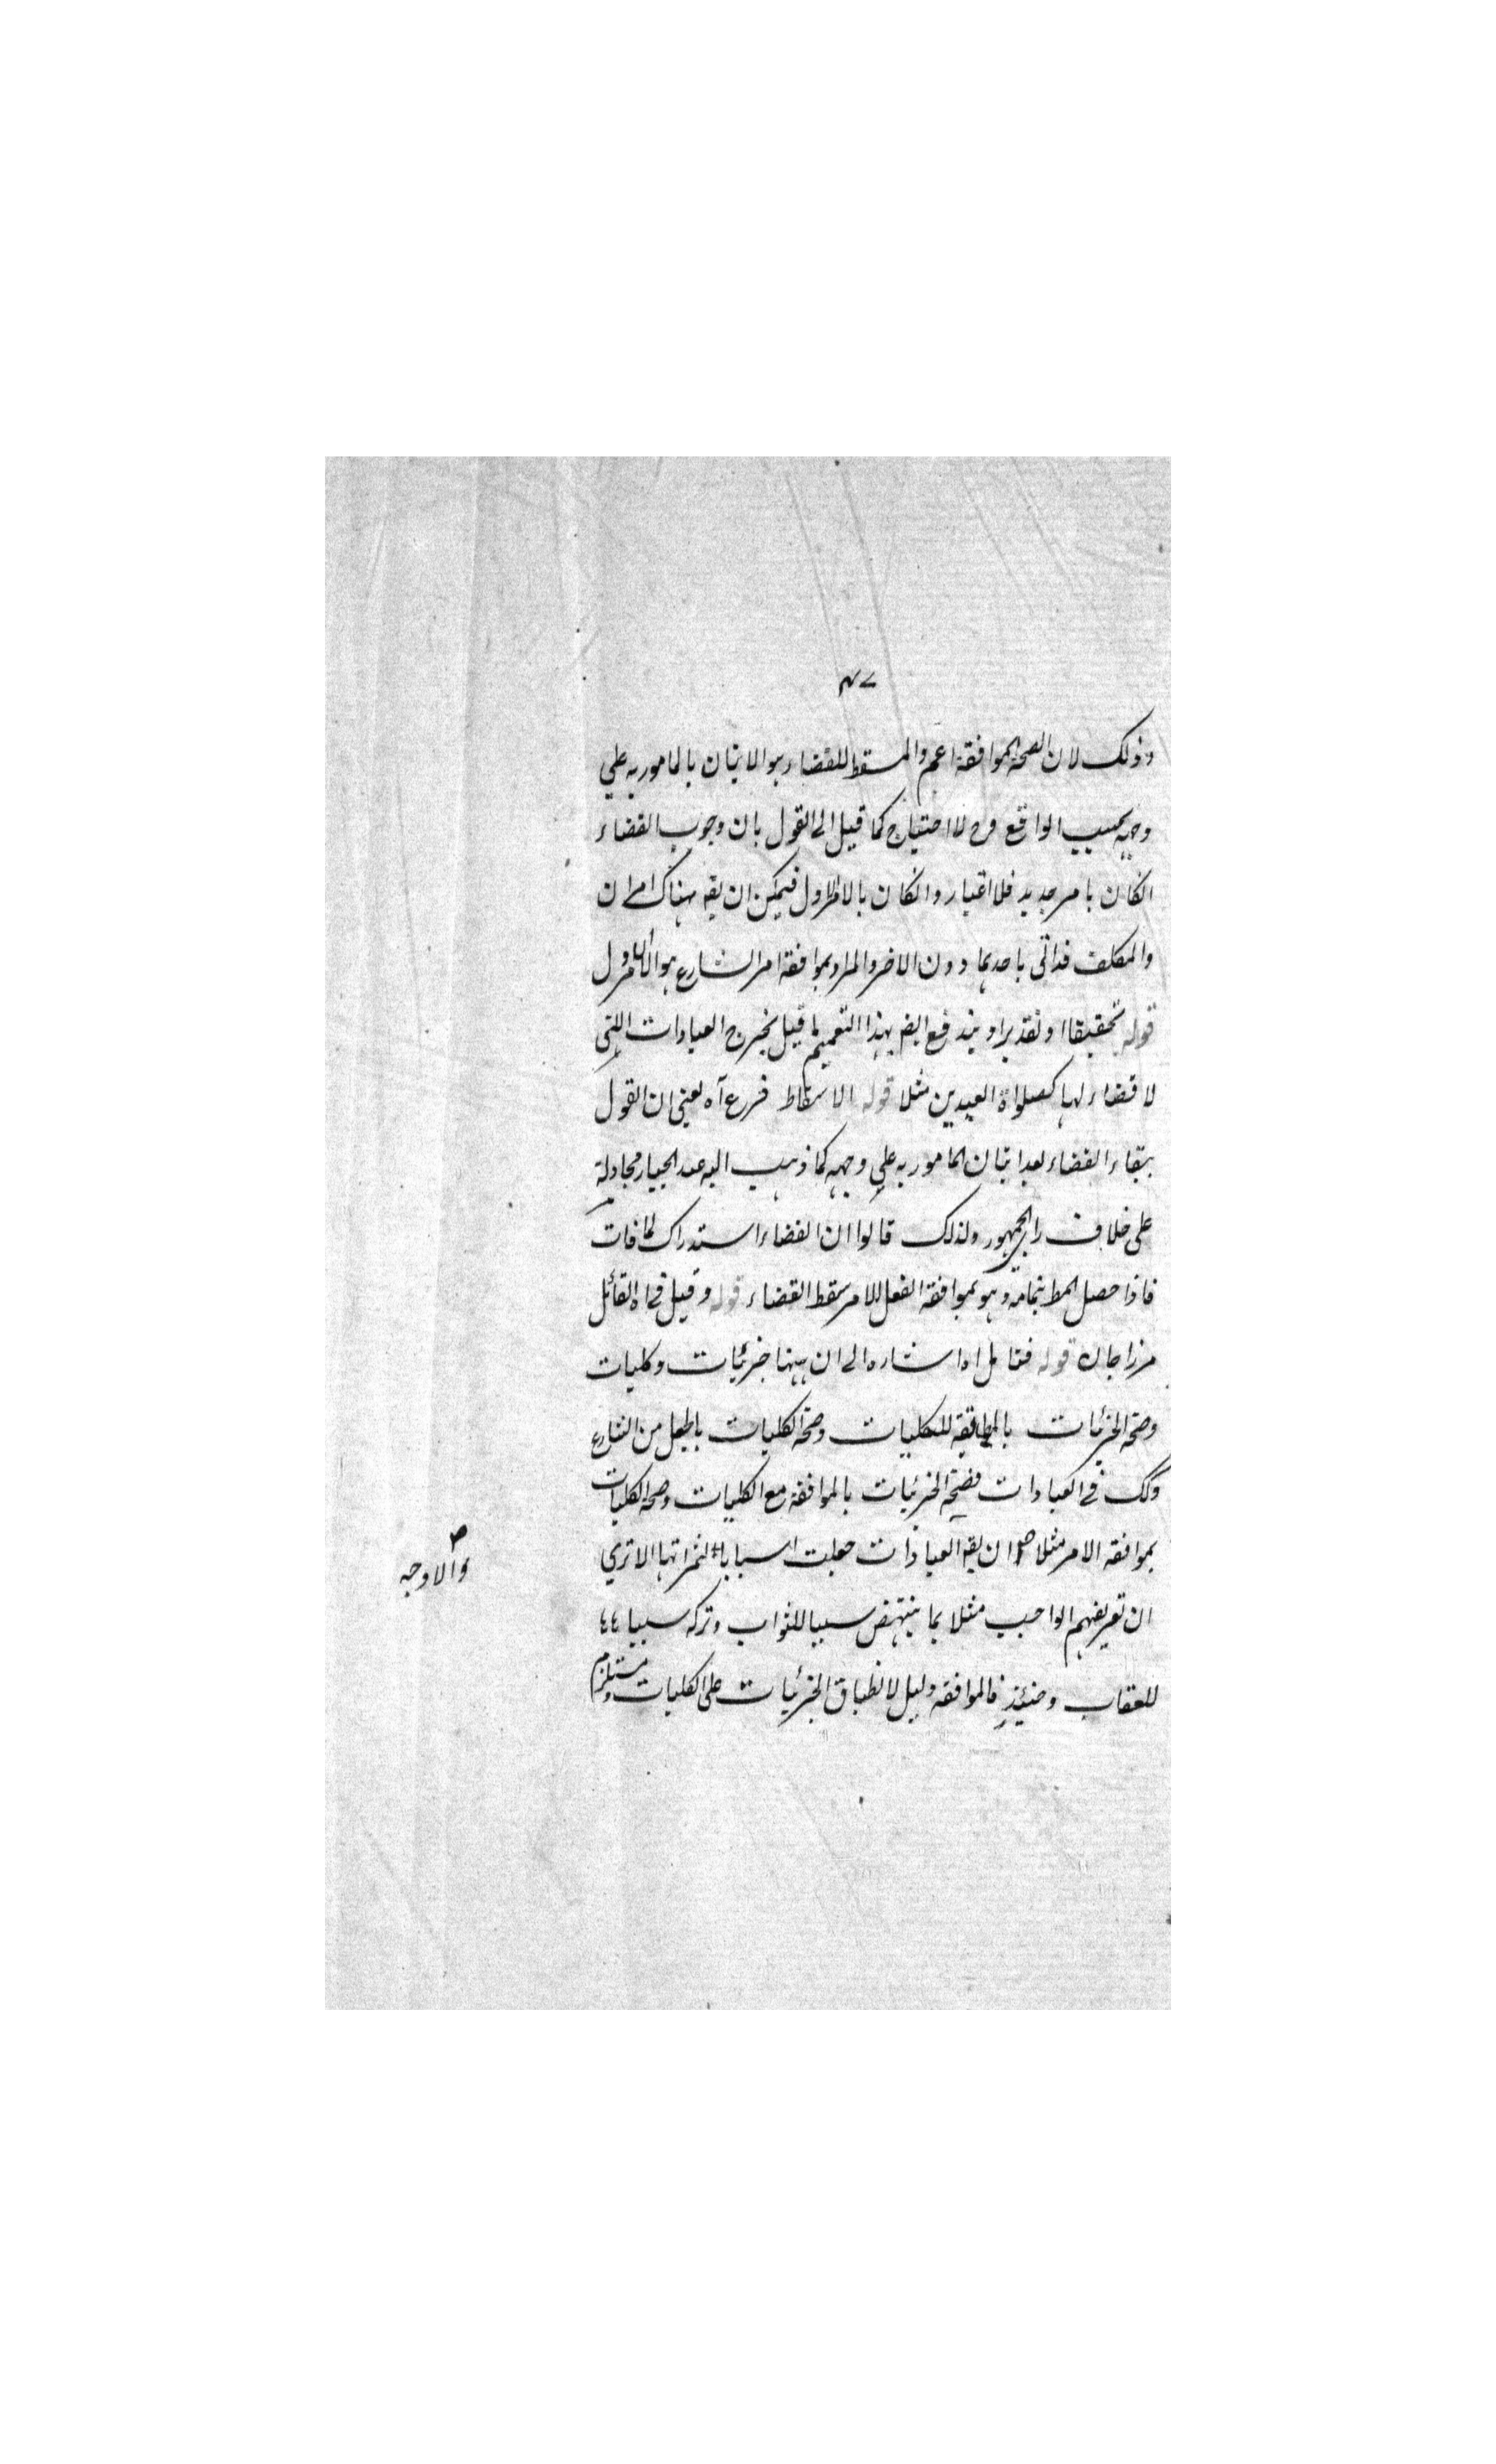 ٤٧
وذلك لان الصحة الموافقة اعم والمسقط للقضاء هو الاتيان بالمامور به علي
وجهه بحسب الواقع وح لا احتياج كما قيل الى القول بان وجوب القضاء
انكان بامر جديد فلا اعتبار وانكان بالامر الاول فيمكن ان يقه هناك امران
والمكلف قد اتى باحدهما دون الاخر والمراد بموافقة امر الشارع هو الامر الاول
قوله تحقيقا او تقديرا ويندفع ايضا بهذا التعميم ما قيل يخرج العبادات اللتى
لا قضاء لها كصلواة العيدين مثلا قوله الاسقاط فرع آه يعنى ان القول
ببقاء القضاء بعد اتيان المامور به علي وجهه كما ذهب اليه عبد الجبار مجادلة
على خلاف راى الجمهور ولذلك قالوا ان القضاء استدراك لما فات
فاذا حصل المط بتمامه وهو بموافقة الفعل الامر سقط القضاء قوله وقيل في اه القائل
مرزا جان قوله فتامل اه اشاره الى ان ههنا جزئيات وكليات
وصحة الجزئيات بالمطابقة للكليات وصحة الكليات بالجعل من الشارع
وكك في العبادات فصحة الجزئيات بالموافقة مع الكليات وصحة الكليات
بموافقة الامر مثلا ان يقه العبادات جعلت اسبابا لثمراتها الا تري
والاوجه
ان تعريفهم الواجب مثلا بما ينتهض سببا للثواب وتركه سببا
للعقاب وحينئذ فالموافقة دليل لانطباق الجزئيات على الكليات ومستلزم